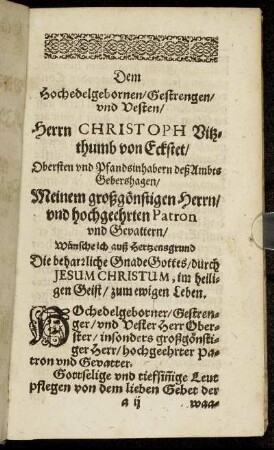 Dem
Hochedelgebornen/Gestrengen/
vnd Vesten/
Herrn CHRISTOPH Vitz-
thumb von Eckstet/
Obersten vnd Pfandsinhabern deß Ambts
Gebershagen/
Meinem großgönstigen Herrn/
vnd hochgeehrten Patron
vnd Gevattern/
Wünsche ich auß Hertzensgrund
Die beharrliche Gnade Gottes/durch
JESUM CHRISTUM, im heili-
gen Geist/zum ewigen Leben.
HOchedelgeborner/Gestren-
ger/vnd Vester Herr Ober-
ster/insonders großgönsti-
ger Herr/hochgeehrter Pa-
tron vnd Gevatter.
Gottselige vnd tiefsinnige Leut
pflegen von dem lieben Gebet der
a ij waa-